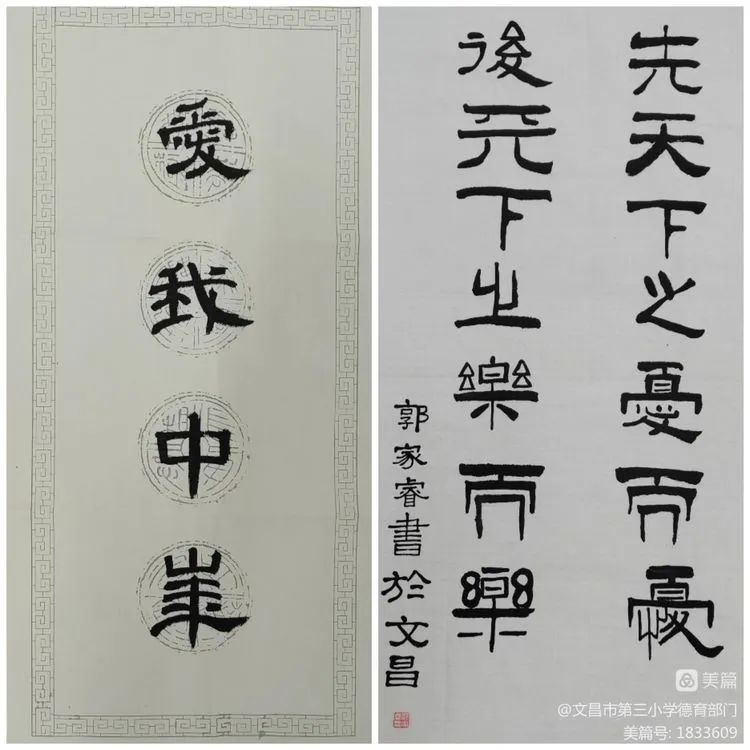 愛我中華
先天下之憂而憂
後天下之樂而樂
郭家睿書於文昌
美篇
@文昌市第三小学德育部门
美篇号: 1833609